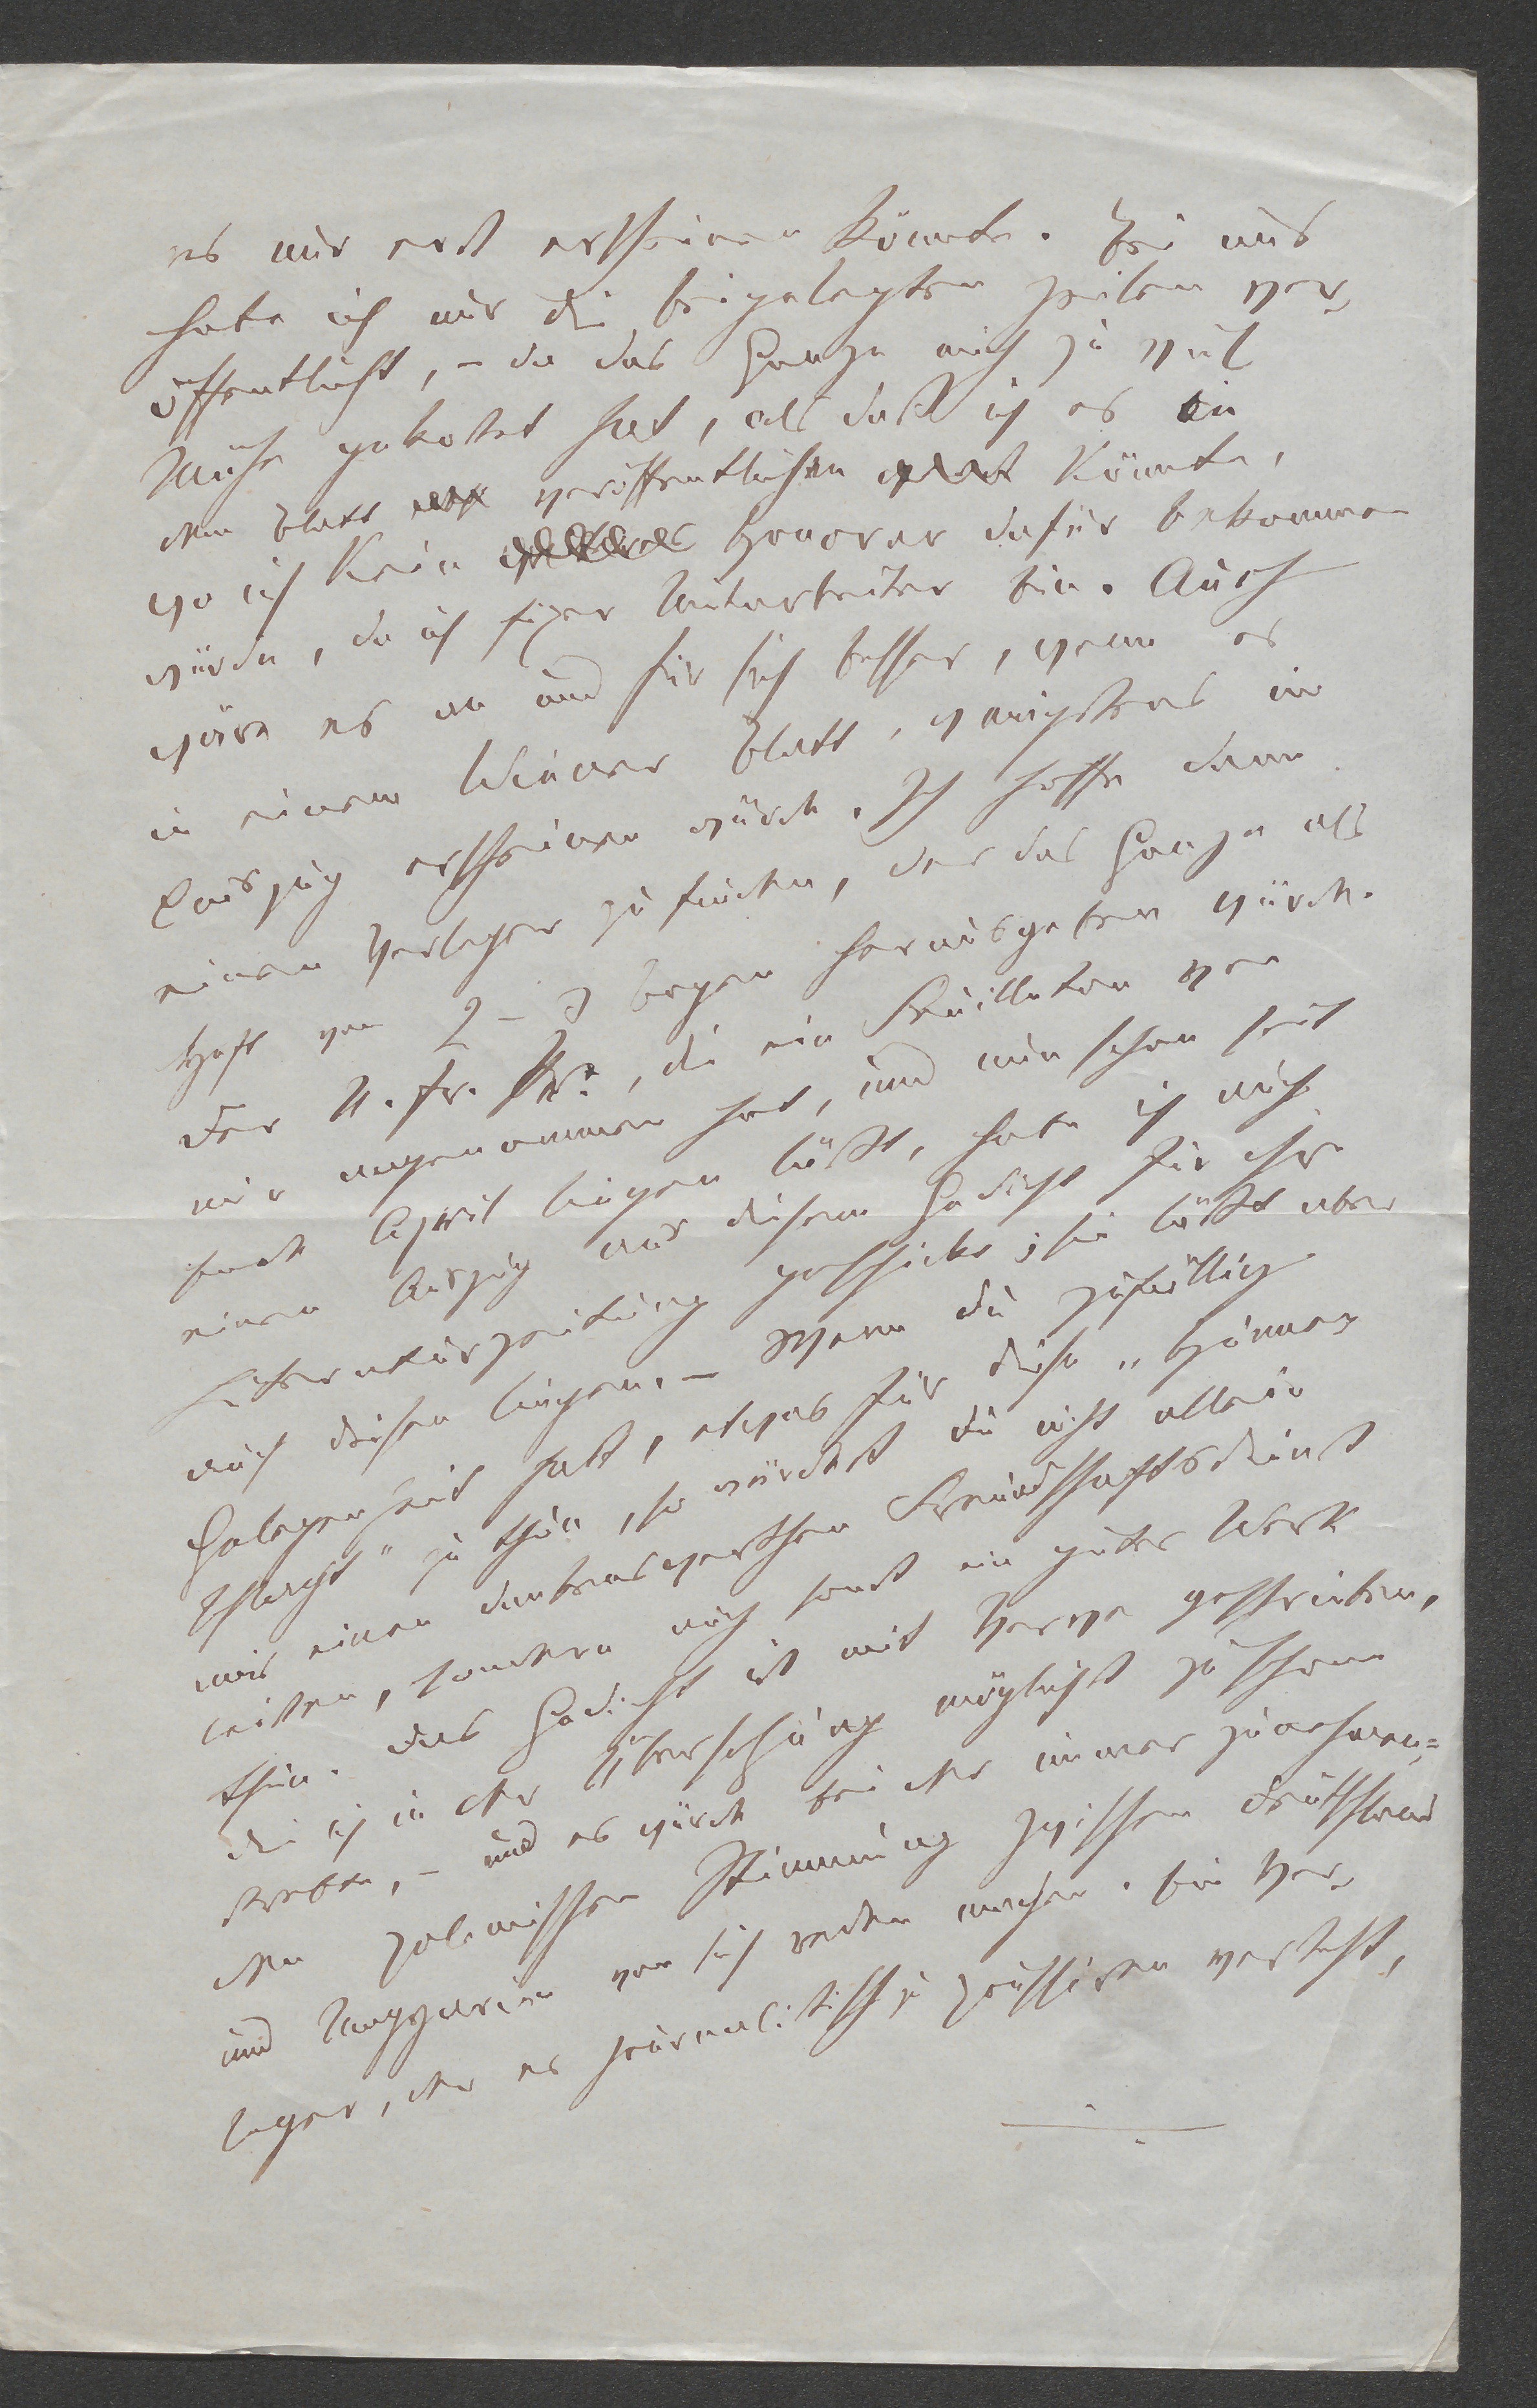 es nur erst erscheinen könnte. Bei uns
habe ich nur die beigelegten Zeilen ver-
öffentlicht, – da das Ganze mich zu viel
Mühe gekostet hat, als daß ich es in
dem Blatt veröffentlichen könnte,
wo ich kein Honorar dafür bekommen
würde, da ich fixer Mitarbeiter bin. Auch
wäre es an und für sich besser, wenn es
in einem Wiener Blatt, wenigstens im
Auszug erscheinen würde. Ich hoffe dann
einen Verleger zu finden, der das Ganze als
Heft von 2 – 3 Bogen herausgeben würde.
Der N. fr. Pr., die ein Feuilleton von
mir angenommen hat, und nun schon seit
Ende April liegen läßt, habe ich auch
einen Auszug aus diesem Gedicht für ihre
Literaturzeitung geschickt; sie läßt aber
auch diesen liegen. – Wenn du zufällig
Gelegenheit hast, etwas für diese „Hunnen-
schlacht" zu thun, so würdest du nicht allein
mir einen dankenswerthen Freundschaftsdienst
leisten, sondern auch sonst ein gutes Werk
thun. Das Gedicht ist mit Verve geschrieben,
die ich in der Übersetzung möglichst zu schonen
strebte, – und es würde bei der immer zunehmen=
den polemischen Stimmung zwischen Deutschland
und Magyarien von sich reden machen. Ein Ver-
leger, der es journalistisch zu poussiren versteht,